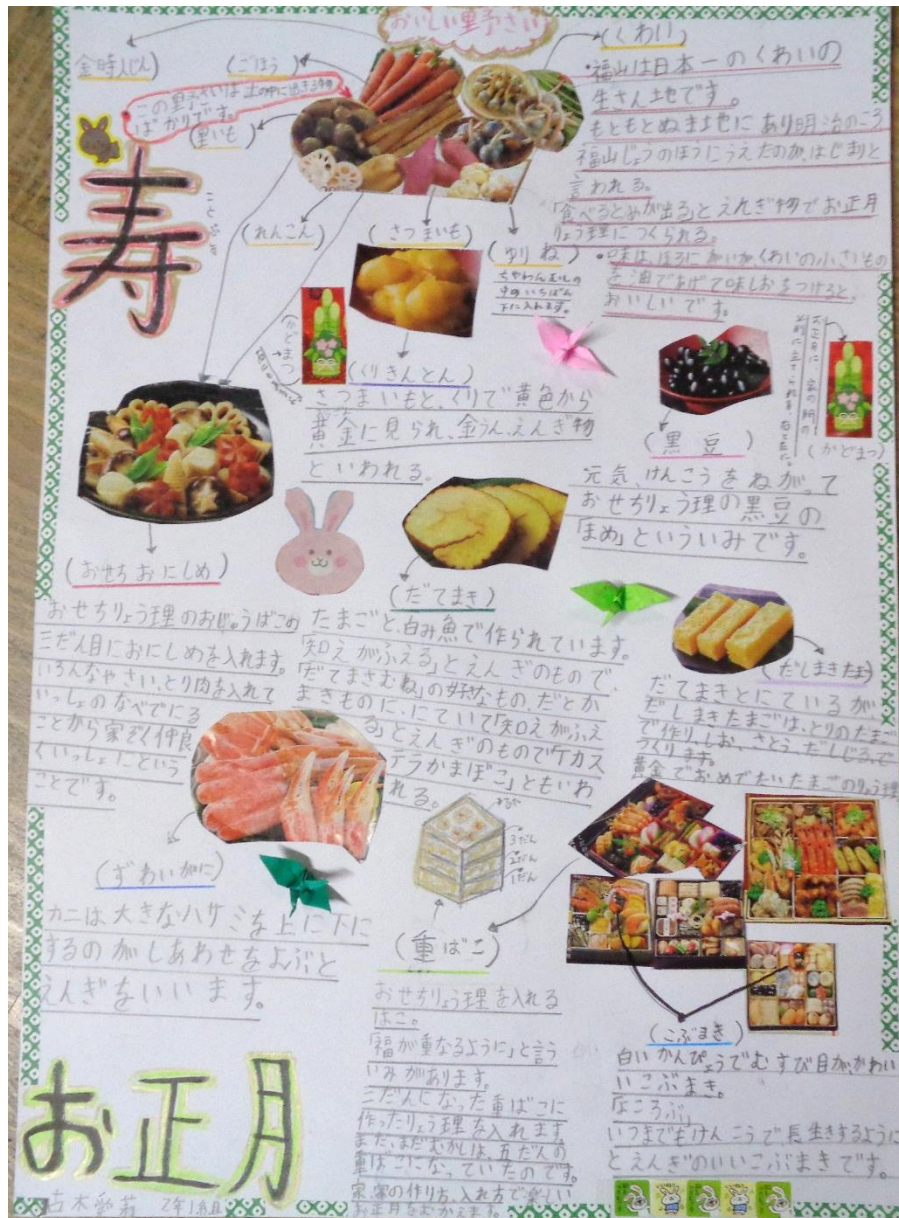 おいしい野さい
金時人じん
(ごぼう)
この野さいは土の中に出きる物
ばかりです。
(里いも)
(れんこん)
(さつまいも)
(ゆりね)
ちゃわんむしの
中のいちばん
下に入れます。
(くわい)
・福山は日本一のくわいの
生さん地です。
もともとぬま土地にあり明治のころ
福山じょうのほりにうえたのが、はじまりと
言われる。
「食べるとめが出る」とえんぎ物でお正月
りょう理につくられる。
・味は、ほろにがいがくわいの小さいもの
を油であげて味しおをつけると、
おいしいです。
寿
ことぶき
(かどまつ)
(くりきんとん)
さつまいもと、くりで黄色から
黄金に見られ、金うん、えんぎ物
といわれる。
お正月に、家の門の
(かどまつ)
(黒豆)
元気、けんこうをねがって
おせちりょう理の黒豆の
「まめ」といういみです。
(おせちおにしめ)
おせちりょう理のおじゅうばこの
三だん目におにしめを入れます。
いろんなやさい、とり肉を入れて
いっしょのなべでにる
ことから家ぞく仲良
くいっしょにという
ことです。
(だてまき)
たまごと、白み魚で作られています。
「知えがふえる」とえんぎのもので、
「だてまさむね」の好きなもの、だとか
まきものに、にていて「知えがふえ
る」とえんぎのもので「カス
テラかまぼこ」ともいわ
れる。
(だしまきたま)
だてまきとにているが
だしまきたまごは、とりのたまご
で作り、しお、さとう、だしじるで
つくります。
黄金でおめでたいたまごのりょう理
(ずわいがに)
カニは大きなハサミを上に下に
するのがしあわせをよぶと
えんぎをいいます。
3だん
2だん
1だん
(重ばこ)
おせちりょう理を入れる
はこ。
「福が重なるように」と言う
いみがあります。
三だんになった重ばこに
作ったりょう理を入れます。
また、まだむかしは、五だんの
重ばこになっていたのです。
家、家の作り方、入れ方で楽しい
お正月をむかえます。
(こぶまき)
白いかんぴょうでむすび目が、かわい
いこぶまき。
「よころぶ」
いつまでもけんこうで、長生きするように
とえんぎのいいこぶまきです。
お正月
2年1組